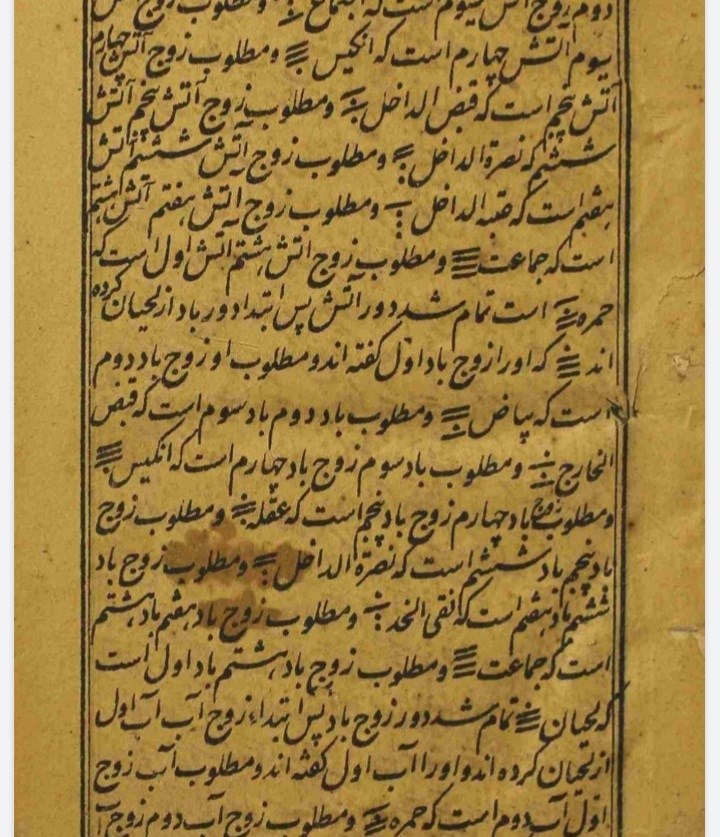 دوم زوج آتش سیوم است که اجتماع و مطلوب زوج آتش
سیوم آتش چهارم است که انکیس و مطلوب زوج آتش چهارم
آتش پنجم است که قبض الداخل و مطلوب زوج آتش پنجم آتش
ششم که نصرة الداخل و مطلوب زوج آتش ششم آتش
هفتم است که عتبه الداخل و مطلوب زوج آتش هفتم آتش هشتم
است که جماعت و مطلوب زوج آتش هشتم آتش اول است که
حمره است تمام شد دور آتش پس ابتدا دور باد از لحیان کرده
اند که او را زوج باد اول گفته اند و مطلوب او زوج باد دوم
است که بیاض و مطلوب باد دوم باد سوم است که قبض
الخارج و مطلوب باد سوم زوج باد چهارم است که انکیس
و مطلوب زوج باد چهارم زوج باد پنجم است که عقله و مطلوب زوج
باد پنجم باد ششم است که نصرة الداخل و مطلوب زوج باد
ششم باد هفتم است که نقی الخد و مطلوب زوج باد هفتم باد هشتم
است که جماعت و مطلوب زوج باد هشتم باد اول است
که لحیان تمام شد دور زوج باد پس ابتداء زوج آب آب اول
از لحیان کرده اند و او را آب اول گفته اند و مطلوب آب زوج
اول آب دوم است که حمره و مطلوب زوج آب دوم زوج آب